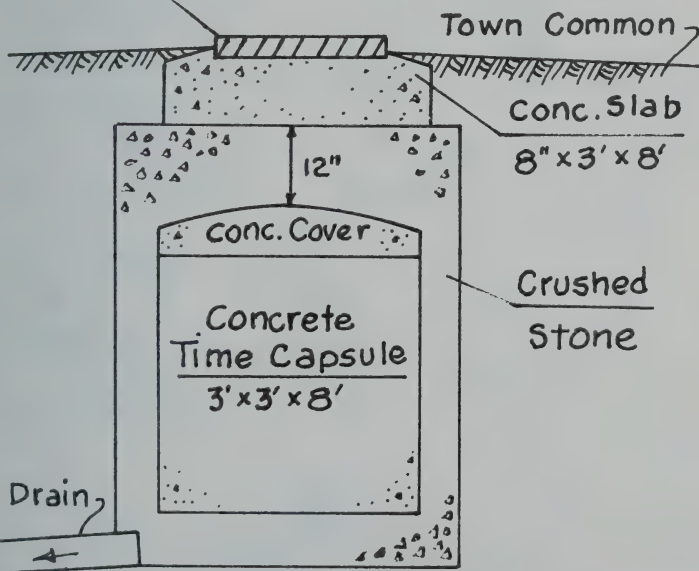 Town Common
Conc. Slab
8" x 3' x 8'
12"
Conc. Cover
Crushed
Stone
Concrete
Time Capsule
3' x 3' x 8'
Drain